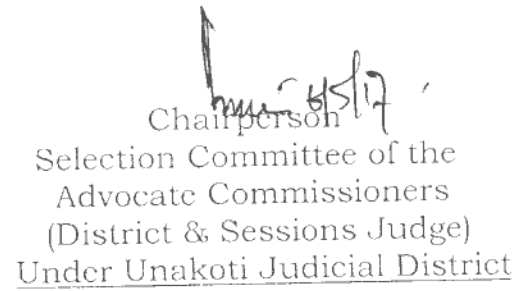 6/5/17
Chairperson
Selection Committee of the
Advocate Commissioners
(District & Sessions Judge)
Under Unakoti Judicial District